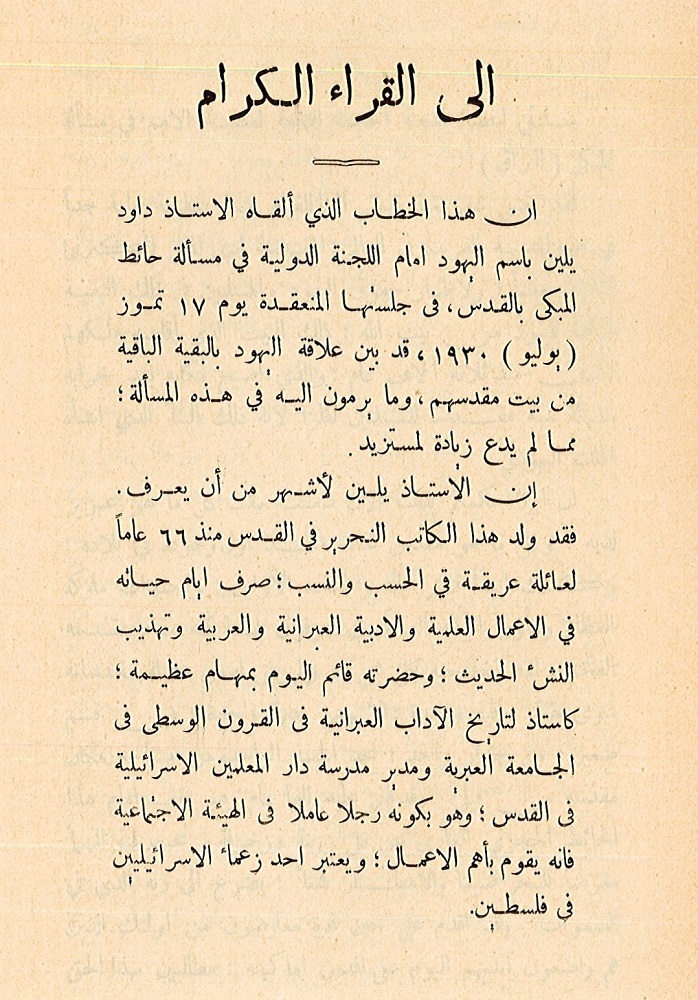 الى القراء الكرام
ان هذا الخطاب الذي ألقاه الاستاذ داود
يلين باسم اليهود امام اللجنة الدولية في مسألة حائط
المبكى بالقدس، فى جلستها المنعقدة يوم ١٧ تموز
(يوليو) ١٩٣٠، قد بين علاقة اليهود بالبقية الباقية
من بيت مقدسهم، وما يرمون اليه في هذه المسألة؛
مما لم يدع زيادة لمستزيد.
إن الأستاذ يلين لأشهر من أن يعرف.
فقد ولد هذا الكاتب النحرير في القدس منذ ٦٦ عاماً
لعائلة عريقة في الحسب والنسب؛ صرف ايام حياته
في الاعمال العلمية والادبية العبرانية والعربية وتهذيب
النشء الحديث؛ وحضرته قائم اليوم بمهام عظيمة؛
كاستاذ لتاريخ الآداب العبرانية فى القرون الوسطى فى
الجامعة العبرية ومدير مدرسة دار المعلمين الاسرائيلية
فى القدس؛ وهو بكونه رجلا عاملا فى الهيئة الاجتماعية
فانه يقوم بأهم الاعمال؛ ويعتبر احد زعماء الاسرائيليين
في فلسطين.